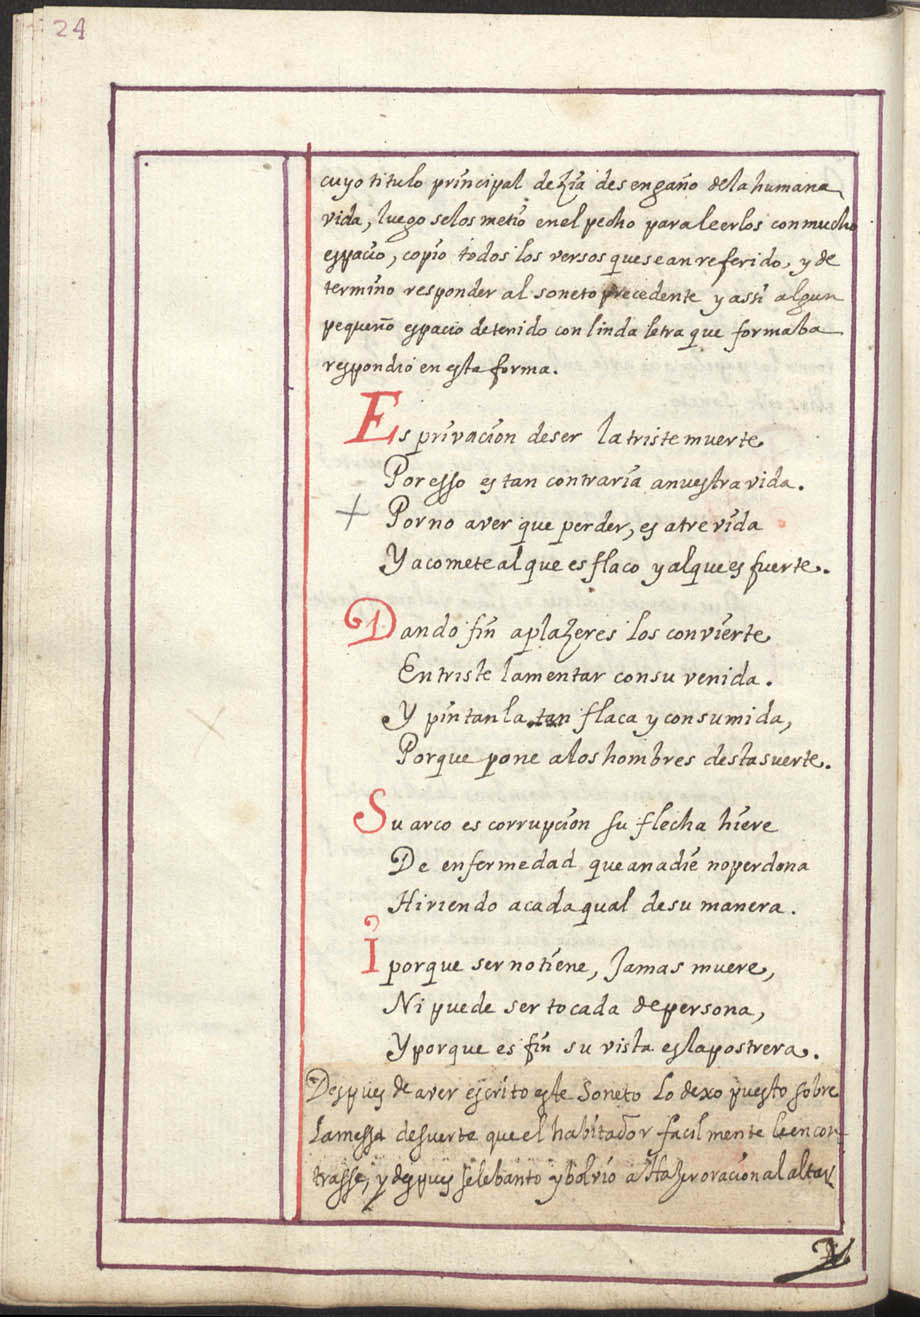 24
cuyo titulo principal dezia desengaño dela humana
vida, luego selos metio enel pecho paraleerlos conmucho
espacio, copio todos los versos quesean referido, y de
termino responder al soneto precedente y assi algun
pequeño espacio detenido con linda letra que formaba
respondio en esta forma.
Es privacion deser la triste muerte
Poresso es tan contraria anuestra vida.
+ Porno aver que perder, es atrevida
Y acomete al que es flaco y alque es fuerte.
Dando fin aplazeres los convierte
Entriste lamentar consu venida.
Y pintanla tan flaca y consumida,
Porque pone alos hombres desta suerte.
Su arco es corrupcion su flecha hiere
De enfermedad que anadie noperdona
Hiriendo acada qual desu manera.
i porque ser no tiene, Jamas muere,
Ni puede ser tocada depersona,
Y porque es fin su vista eslapostrera.
Despues de aver escrito este Soneto Lo dexo puesto sobre
Lamessa desuerte que el habitador facilmente leencon
trasse, y despues selebanto y bolvio a Hazer oracion al altar